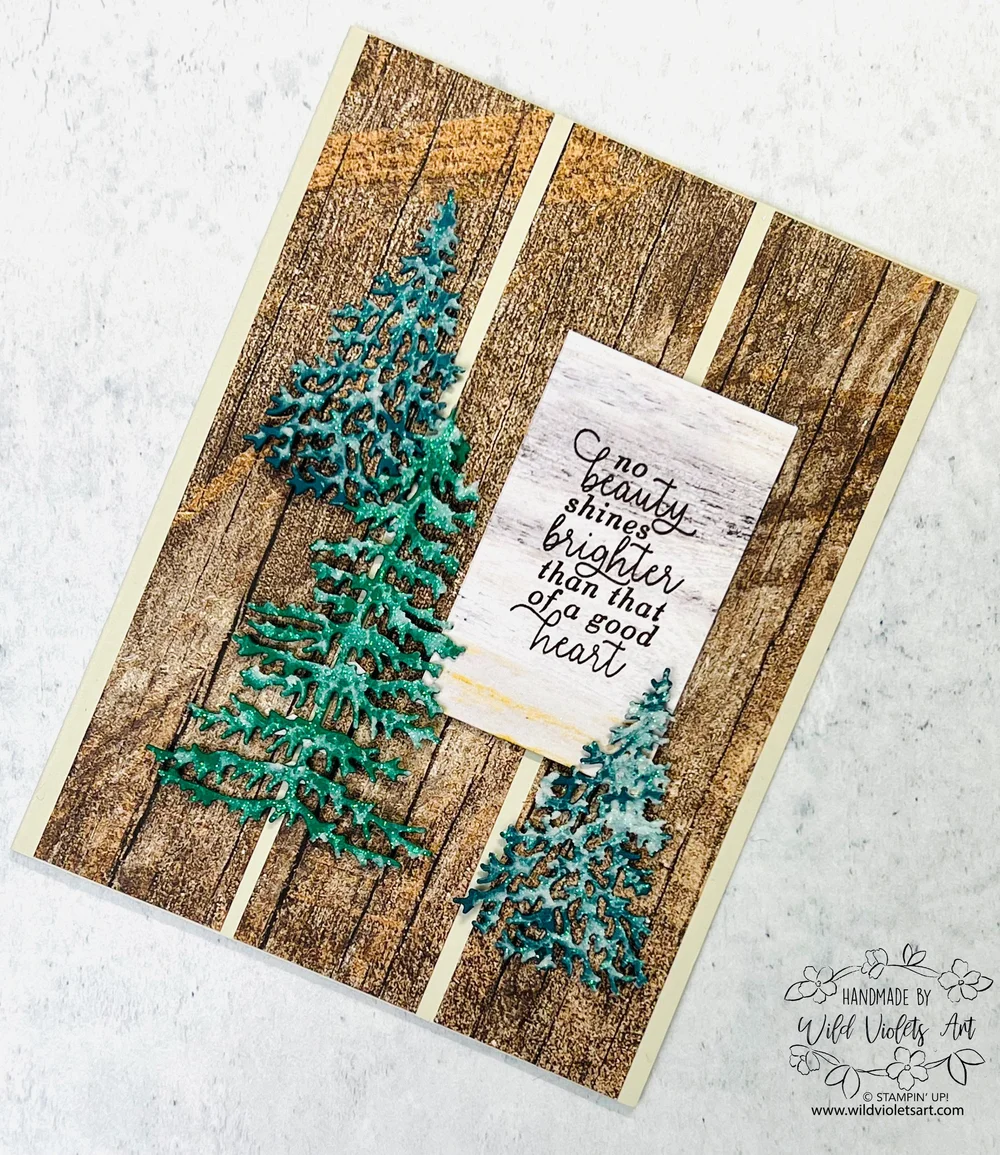 no
beauty
shines
brighter
than that
of a good
heart
HANDMADE BY
Wild Violets Art
© STAMPIN' UP!
www.wildvioletsart.com